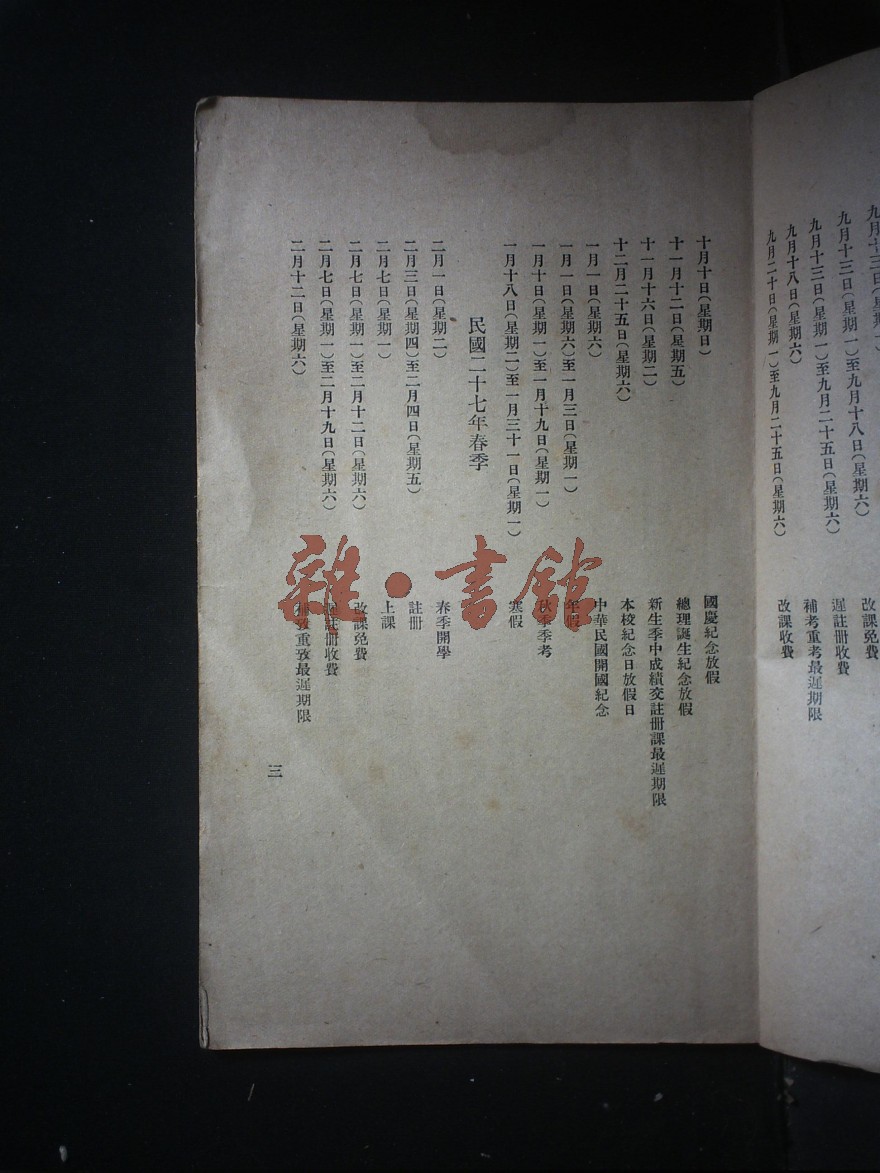 九月十三日(星期一)
改課免費
九月十三日(星期一)至九月十八日(星期六)
遲註冊收費
九月十三日(星期一)至九月二十五日(星期六)
補考重考最遲期限
九月十八日(星期六)
改課收費
九月二十日(星期一)至九月二十五日(星期六)
十月十日(星期日)
國慶紀念放假
十一月十二日(星期五)
總理誕生紀念放假
十一月十六日(星期二)
新生季中成績交註冊課最遲期限
十二月二十五日(星期六)
本校紀念日放假日
一月一日(星期六)
中華民國開國紀念
一月一日(星期六)至一月三日(星期一)
年假
一月十日(星期一)至一月十九日(星期一)
秋季季考
一月十八日(星期二)至一月三十一日(星期一)
寒假
民國二十七年春季
二月一日(星期二)
春季開學
二月三日(星期四)至二月四日(星期五)
註冊
二月七日(星期一)
上課
二月七日(星期一)至二月十二日(星期六)
改課免費
二月七日(星期一)至二月十九日(星期六)
遲註冊收費
二月十二日(星期六)
補攷重攷最遲期限
三
雜·書館